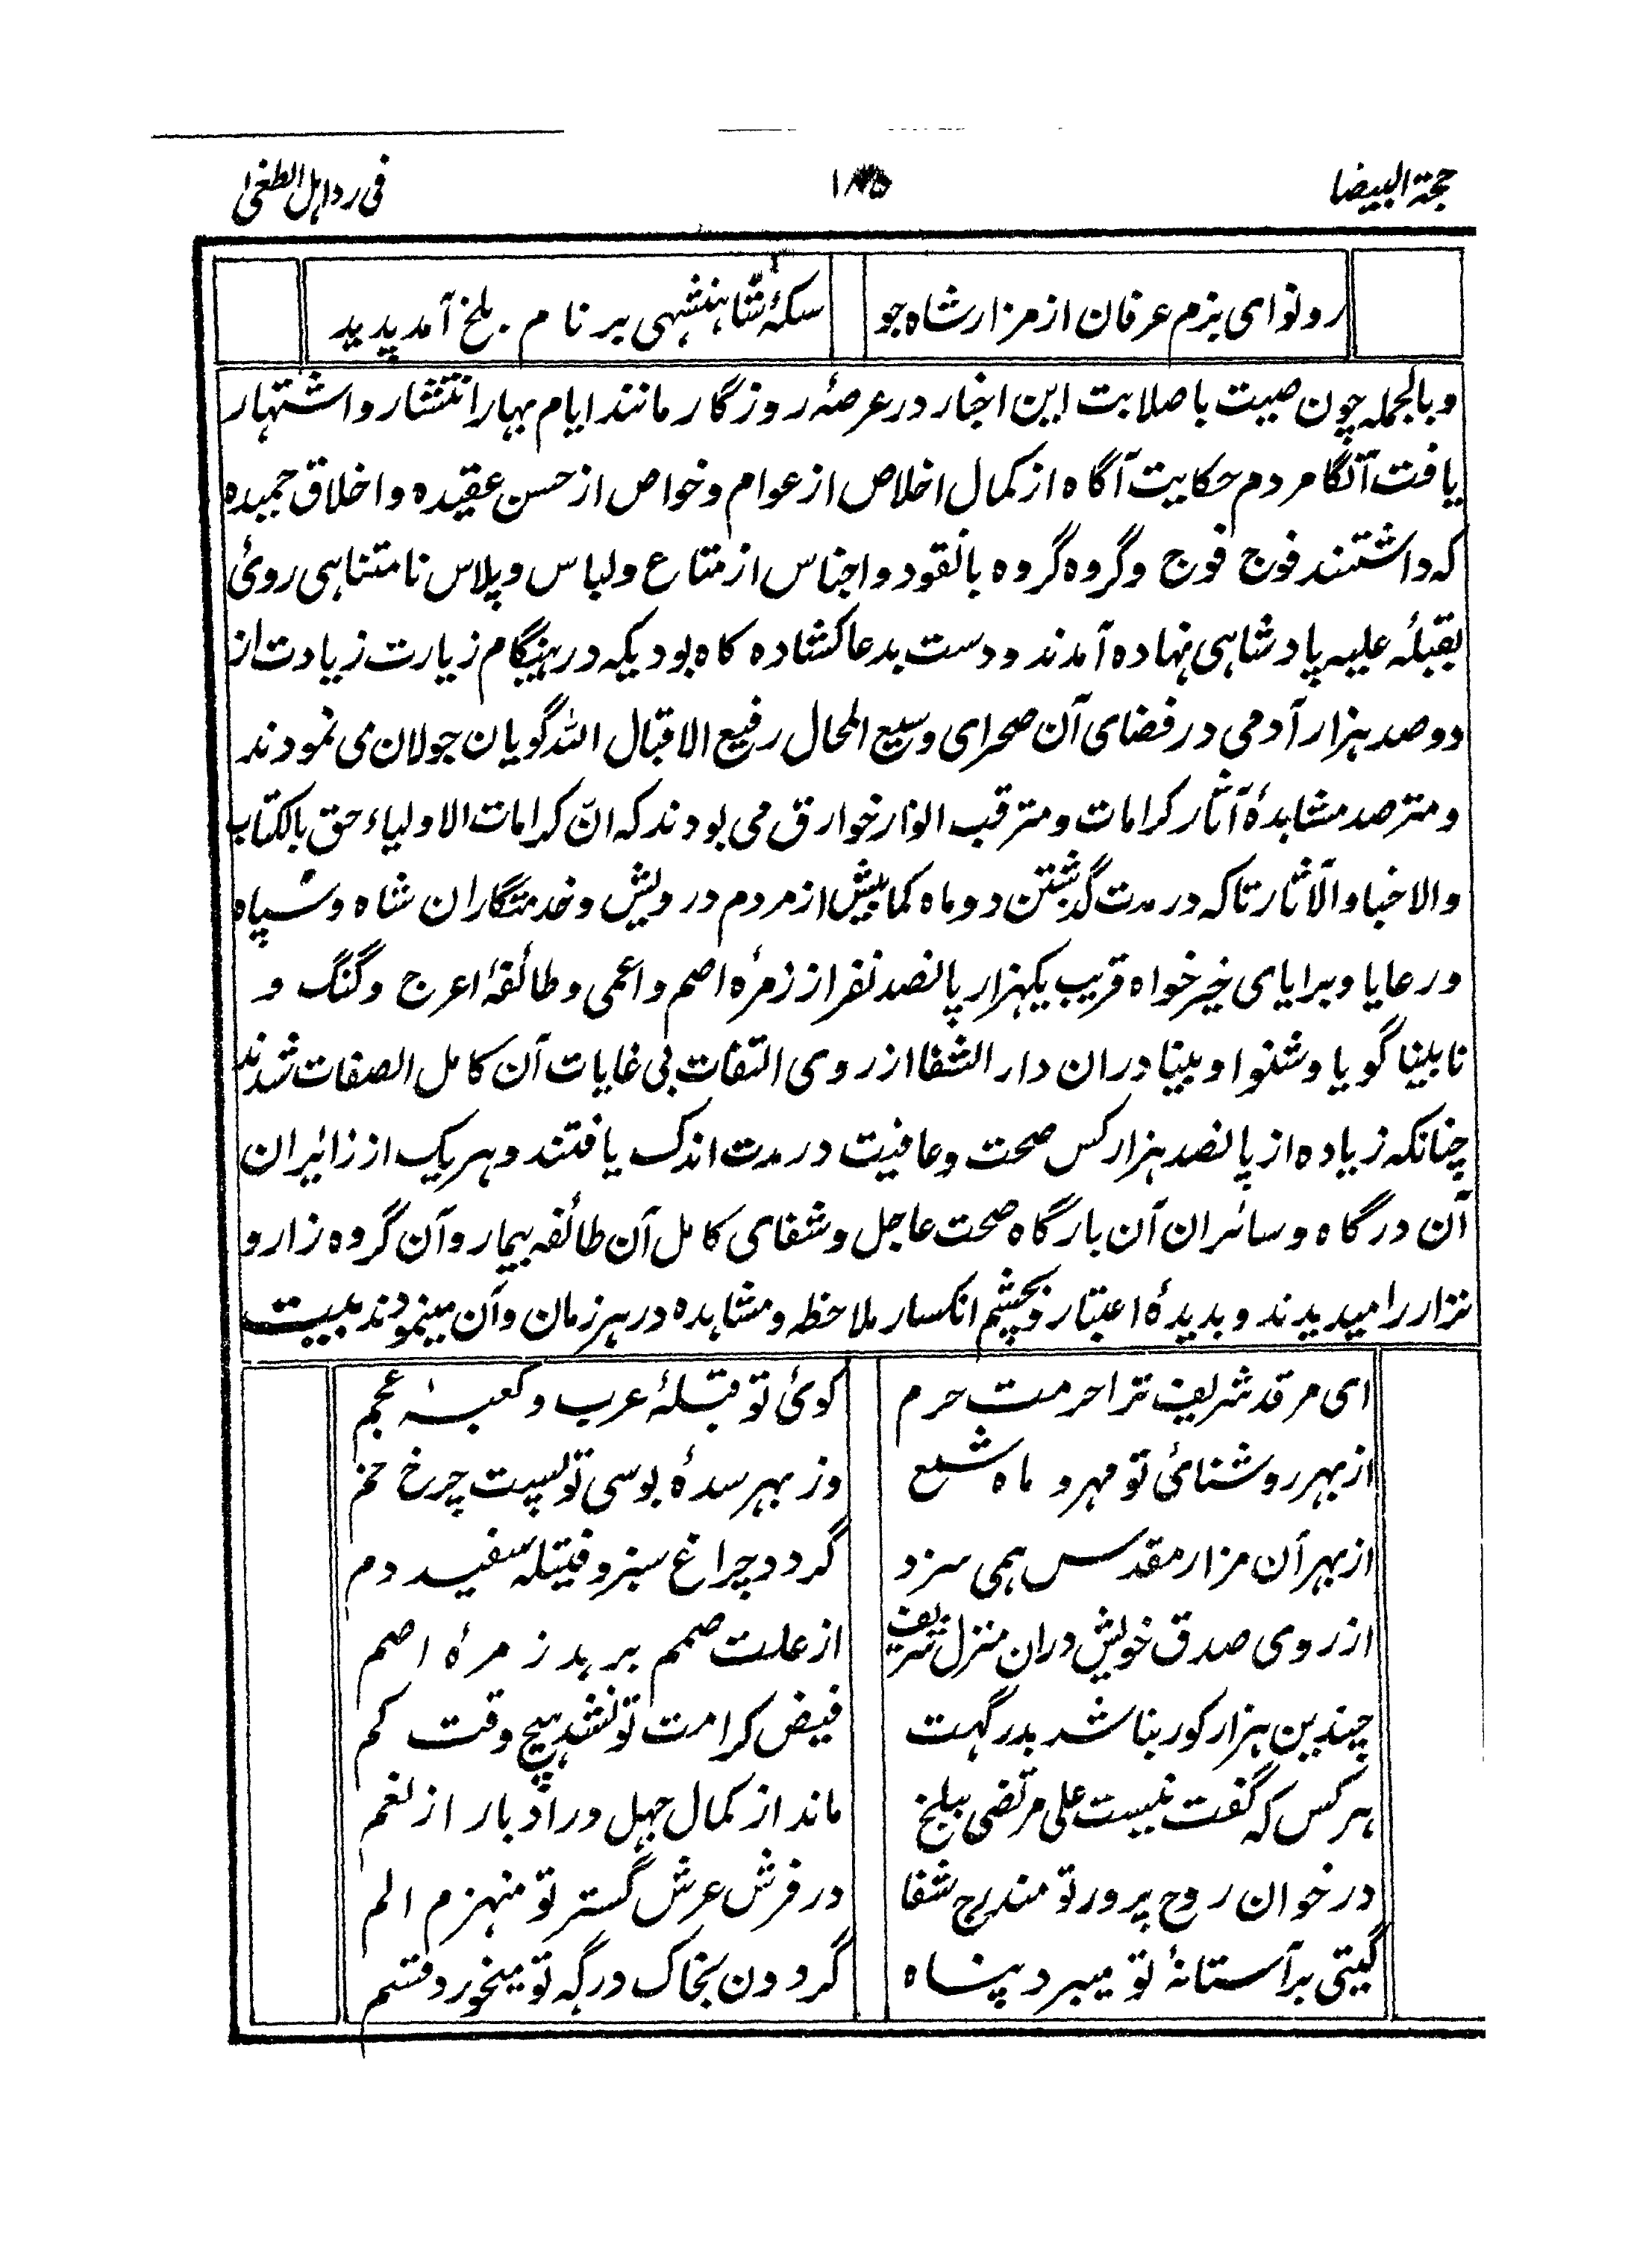 حجة البیضا
فی رد اهل الطغی
رو نوای بزم عرفان از مزار شاه جو
سکۀ شاهنشهی بر نام بلخ آمد پدید
وبالجمله چون صیت با صلابت این اخبار در عرصۀ روزگار مانند ایام بهار انتشار و اشتهار
یافت آنگا مردم حکایت آگاه از کمال اخلاص از عوام و خواص از حسن عقیده و اخلاق حمیده
که داشتند فوج فوج و گروه گروه بانقود و اجناس از متاع و لباس و پلاس نامتناهی روئ
بقبلۀ علیه پادشاهی نهاده آمدند و دست بدعا کشاده کاه بودیکه در هنگام زیارت زیادت از
دو صد هزار آدمی در فضای آن صحرای وسیع المحال رفیع الاقبال الله گویان جولان می نمودند
و مترصد مشاهدۀ آثار کرامات و مترقب انوار خوارق می بودند که انّ کرامات الاولیاء حق بالکتاب
والاخبا والآثار تا که در مدت گذشتن دو ماه کمابیش از مردم درویش و خدمتگاران شاه و سپاه
و رعایا و برایای خیرخواه قریب یکهزار پانصد نفر از زمرۀ اصم و اعمی و طائفۀ اعرج و گنگ و
نابینا گویا و شنوا و بینا دران دار الشفا از روی التفات بی غایات آن کامل الصفات شدند
چنانکه زیاده از پانصد هزار کس صحت و عافیت در مدت اندک یافتند و هر یک از زائران
آن درگاه و سائران آن بارگاه صحت عاجل و شفای کامل آن طائفه بیمار و آن گروه زار و
نزار را میدیدند و بدیدۀ اعتبار و بچشم انکسار ملاحظه و مشاهده در هر زمان و آن مینمودند بیت
ای مرقد شریف ترا حرمت حرم
کوئ تو قبلۀ عرب و کعبۀ عجم
از بهر روشنائ تو مهر و ماه شمع
وز بهر سدۀ بوسی تو پست چرخ خم
از بهر آن مزار مقدس همی سزد
گردد چراغ سبز و فیتله سفید دم
از روی صدق خویش دران منزل شریف
از علت صمم برهد زمرۀ اصم
چندین هزار کور بنا شد بدرگهت
فیض کرامت تو نشد هیچ وقت کم
هر کس که گفت نیست علی مرتضی ببلخ
ماند از کمال جهل در ادبار از نعم
در خوان روح پرور تو مندرج شفا
در فرش عرش گستر تو منهزم الم
گیتی بر آستانۀ تو میبرد پناه
گردون بخاک درگه تو میخورد قسم